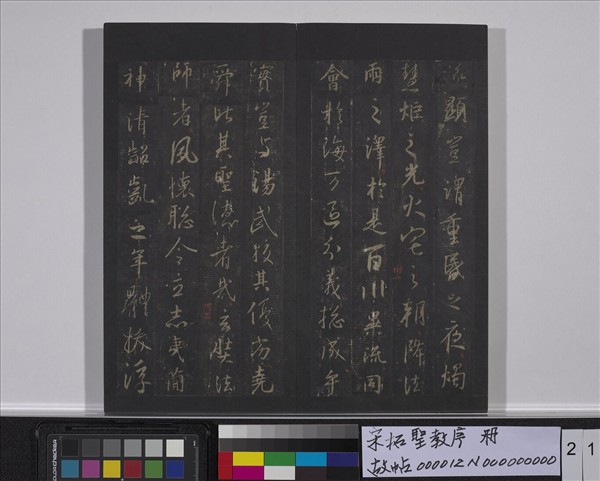 遂顯豈謂重昏之夜燭
慧炬之光火宅之朝降法
雨之澤於是百川異流同
會於海万區分義捴成乎
實豈與湯武校其優劣堯
舜比其聖德者哉玄奘法
師者夙懷聰令立志夷簡
神清齠齔之年體拔浮
宋拓聖教序 冊
故帖000012N000000000
2 1